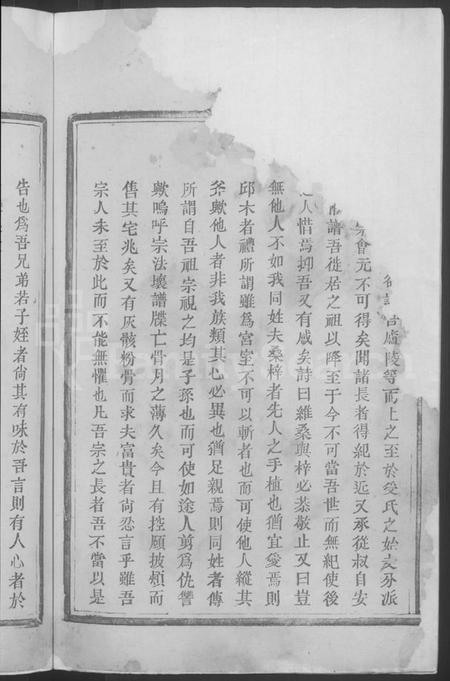 古廬陵等而上之至於受氏之始支分派
會元不可得矣聞諸長者得紀於近又承從叔自安
譜吾徙居之祖以降至于今不可當吾世而無紀使後
人惜焉抑吾又有感矣詩曰維桑與梓必恭敬止又曰豈
無他人不如我同姓夫桑梓者先人之手植也猶宜愛焉則
邱木者禮所謂雖爲宮室不可以斬者也而可使他人縱其
斧歟他人者非我族類其心必異也猶足親焉則同姓者傳
所謂自吾祖宗視之均是子孫也而可使如途人剪爲仇讐
歟嗚呼宗法壞譜牒亡骨月之薄久矣今且有控願披頬而
售其宅兆矣又有灰骸粉骨而求夫富貴者尙忍言乎雖吾
宗人未至於此而不能無懼也凡吾宗之長者吾不當以是
告也爲吾兄弟若子姪者尙其有味於吾言則有人心者於